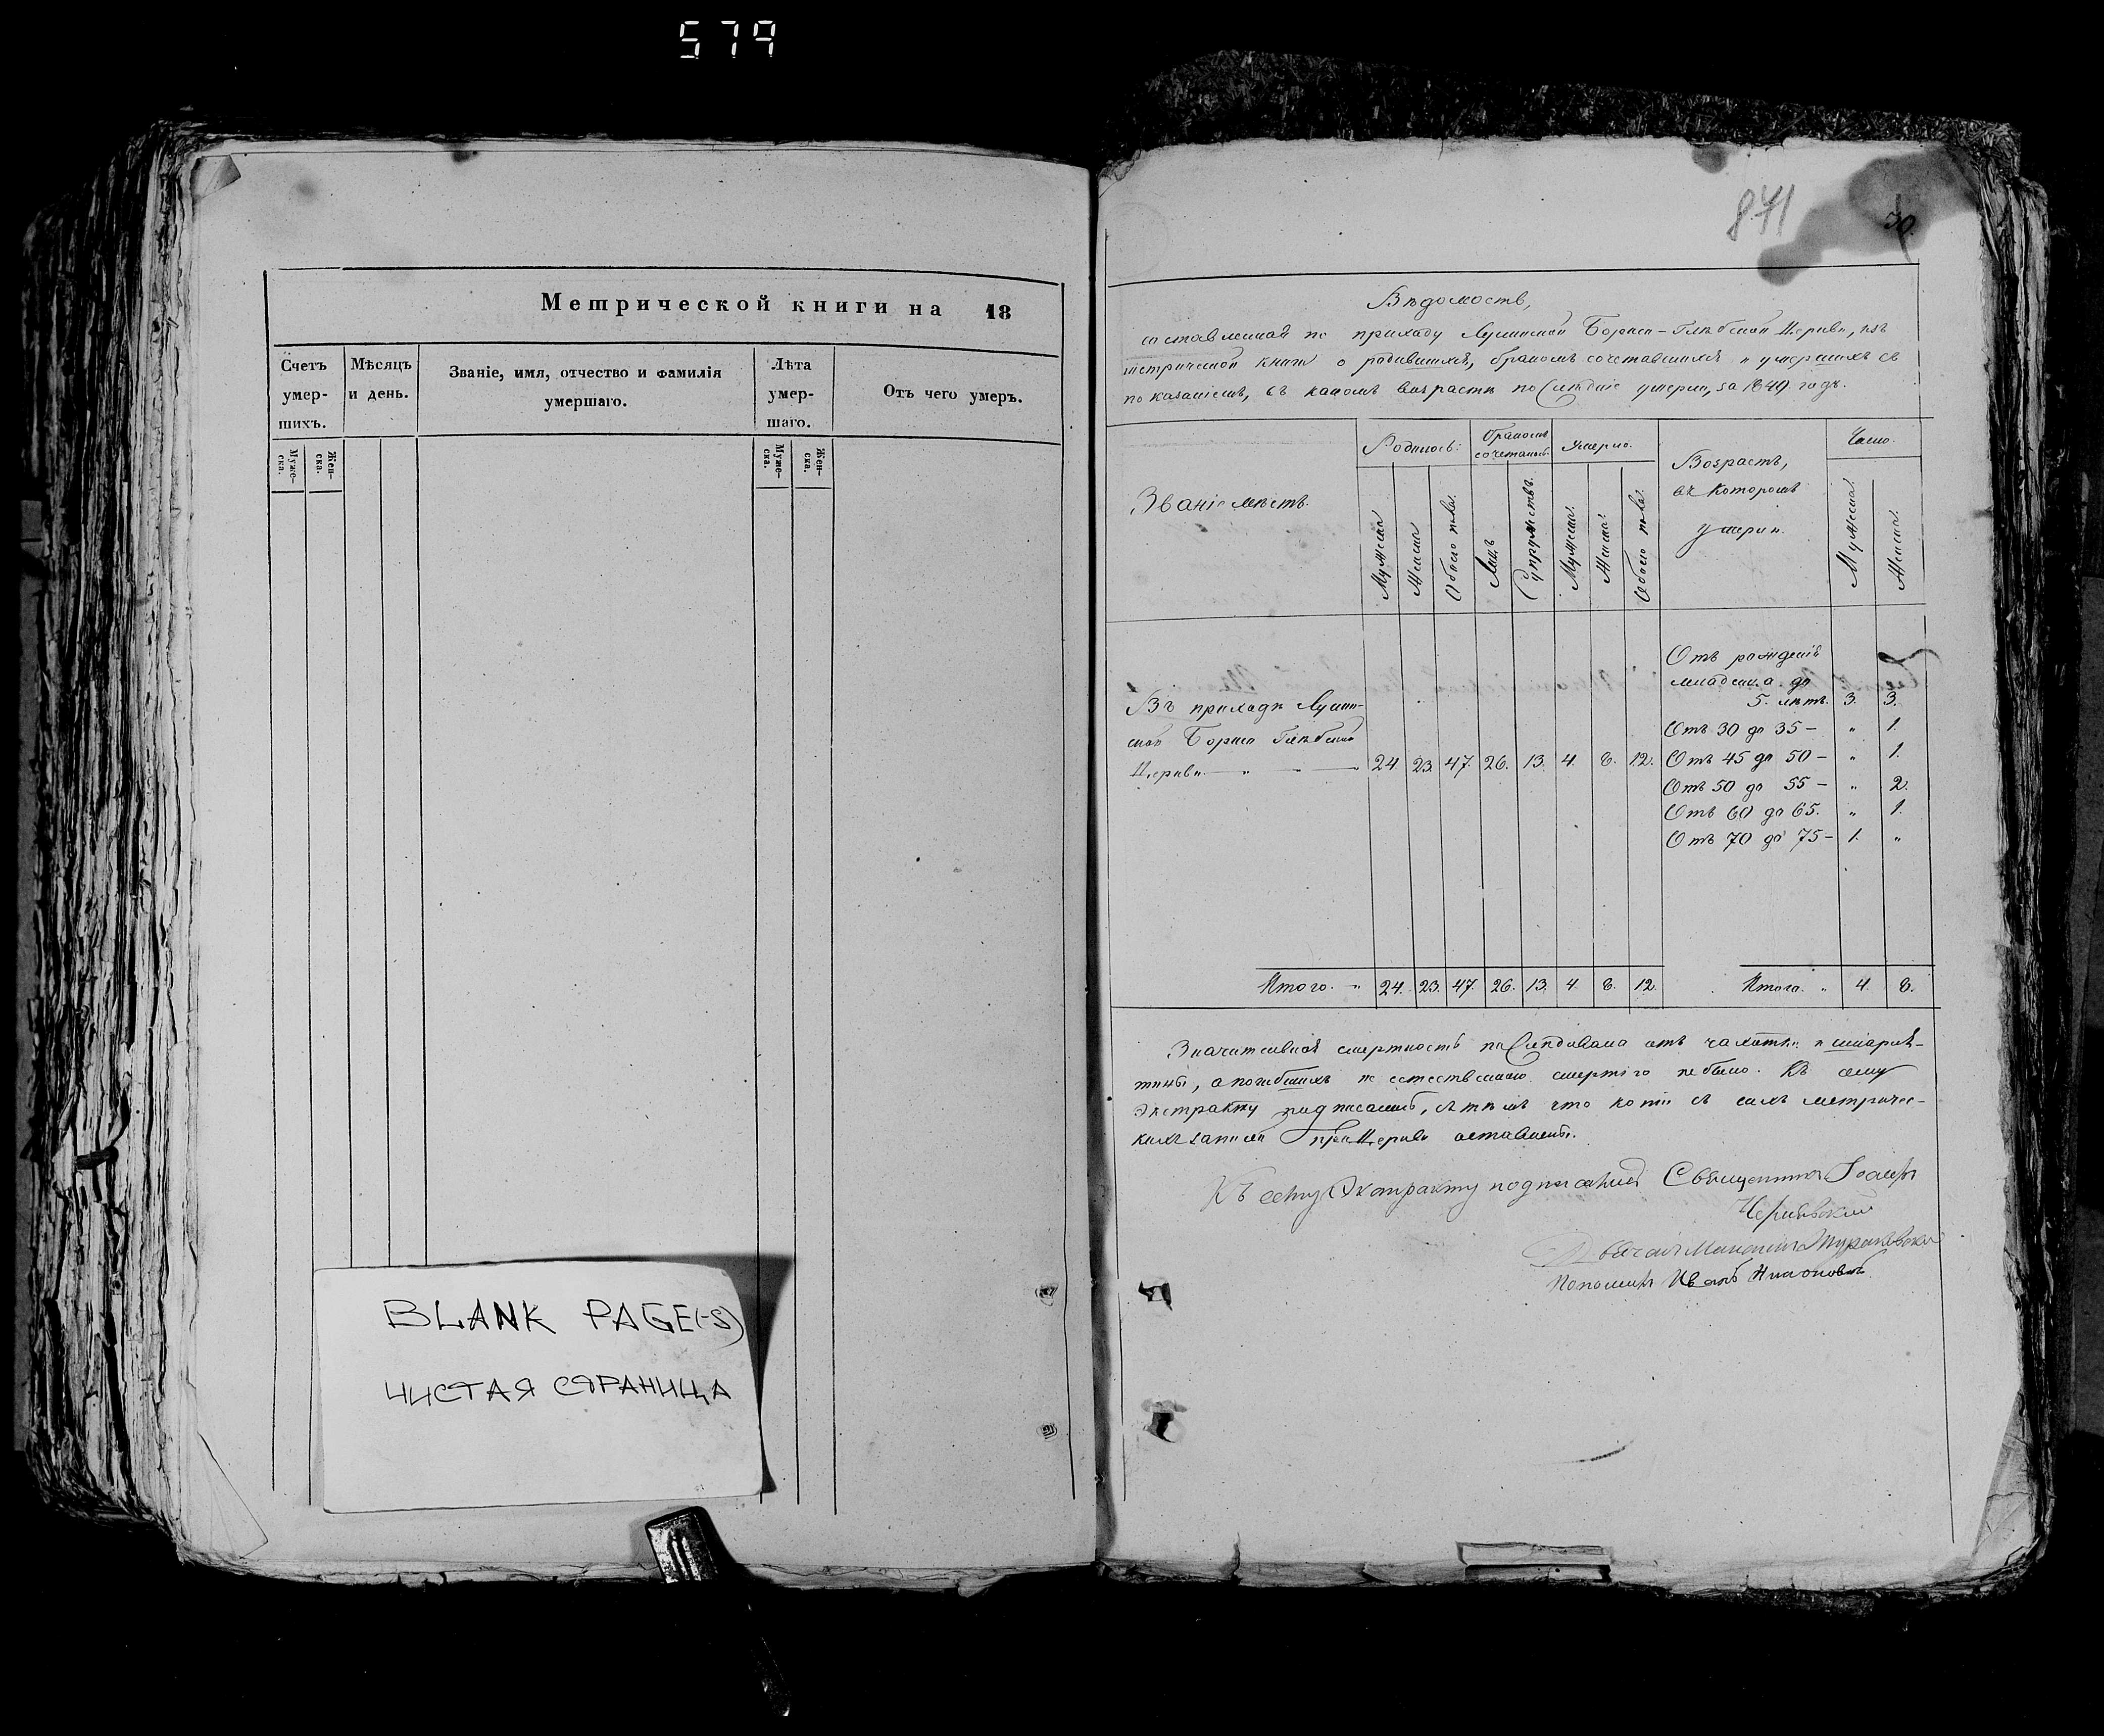 579
Метрической книги на 18
Счетъ умер- шихъ.
Мѣсяцъ и день.
Званіе, имя, отчество и фамилія умершаго.
Лѣта умер- шаго.
Отъ чего умеръ.
Муже- ска.
Жен- ска.
Муже- ска.
Жен- ска.
BLANK PAGE(-S)
ЧИСТАЯ СТРАНИЦА
841
30.
Вѣдомость,
составленная по приходу Борисо-Глѣбской Церкви, изъ
метрической книги о родившихся, бракомъ сочетавшихся и умершихъ съ
показаніемъ, въ какомъ возрастѣ послѣдніе умерли, за 1849. годъ.
Званіе мѣстъ.
Родилось:
Бракомъ сочеталось.
Умерло.
Возрастъ,
въ которомъ
умерли.
Число.
Мужеска
Женска
Обоего пола.
Лицъ
Супружествъ.
Мужеска.
Женска.
Обоего пола.
Мужеска.
Женска.
Отъ рожденія
младенца до
5. лѣтъ. 3. 3.
Отъ 30 до 35 – „ 1.
Отъ 45 до 50 – „ 1.
Отъ 50 до 55 – „ 2.
Отъ 60 до 65. „ 1.
Отъ 70 до 75 – 1. „
Въ приходѣ
Борисо Глѣбской
Церкви — „ — 24. 23. 47. 26. 13. 4. 8. 12.
Итого. „ 24. 23. 47. 26. 13. 4. 8. 12
Итого. „ 4. 8.
Значительная смертность послѣдовала отъ чахотки и скарля-
тины, а погибшихъ не естественною смертію не было. Къ сему
Экстракту подписались, съ тѣмъ что копіи съ сихъ метричес-
кихъ записей при Церкви оставлены.
Къ сему Экстракту подписались Священникъ Іоаннъ
Дьячокъ
Пономарь Иванъ